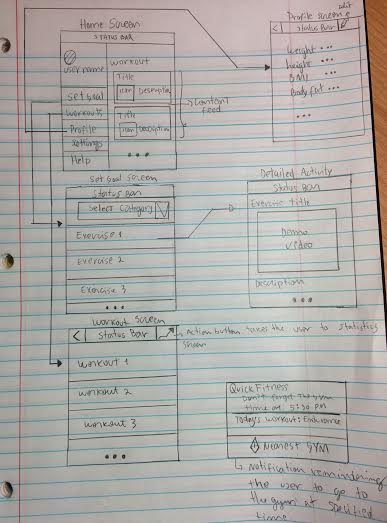 Home Screen
STATUS BAR
username
Set Goal
Workouts
Profile
Settings
Help
Workout
Title
icon Description
Title
icon Description
Content
feed
Profile Screen
edit
< Status Bar
Weight ...
height ...
BMI ...
Body fat ...
...
Set Goal Screen
Status Bar
Select Category
Exercise 1
Exercise 2
Exercise 3
Detailed Activity
Status BAR
Exercise title
Demo
Video
Description
Workout Screen
< Status Bar
Action button takes the user to statistics
screen
Workout 1
workout 2
workout 3
Quick Fitness
Don't forget the gym
time at 5:30 PM
Todays workout: Endurance
Nearest GYM
Notification remindering
the user to go to
the gym at specified
time